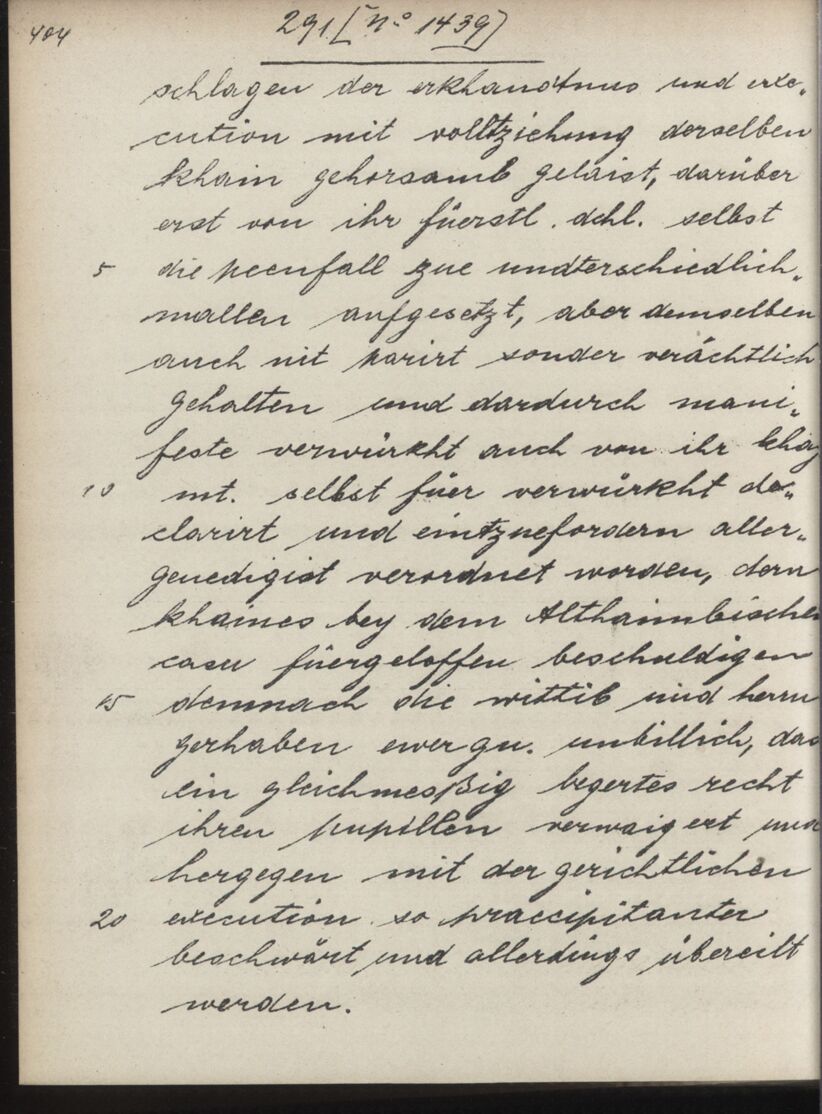 404
291 [No 1439]
schlagen der erkhandtnus und exe„
cution mit volltziehung derselben
khain gehorsamb gelaist, darüber
erst von ihr füerstl. dchl. selbst
5 die peenfall zue undterschiedlich„
mallen aufgesetzt, aber demselben
auch nit parirt sonder verächtlich
gehalten und dardurch mani„
feste verwürkht auch von ihr khay
10 mt. selbst füer verwürkht de„
clarirt und eintzuefordern aller„
genedigist verordnet worden, dern
khaines bey dem Althaimbischen
casu füergeloffen beschuldigen
15 demnach die wittib und herrn
gerhaben ewer gn. unbillich, das
ein gleichmeßig begertes recht
ihren pupillen verwaigert und
hergegen mit der gerichtlichen
20 execution so praecipitanter
beschwärt und allerdings übereilt
werden.